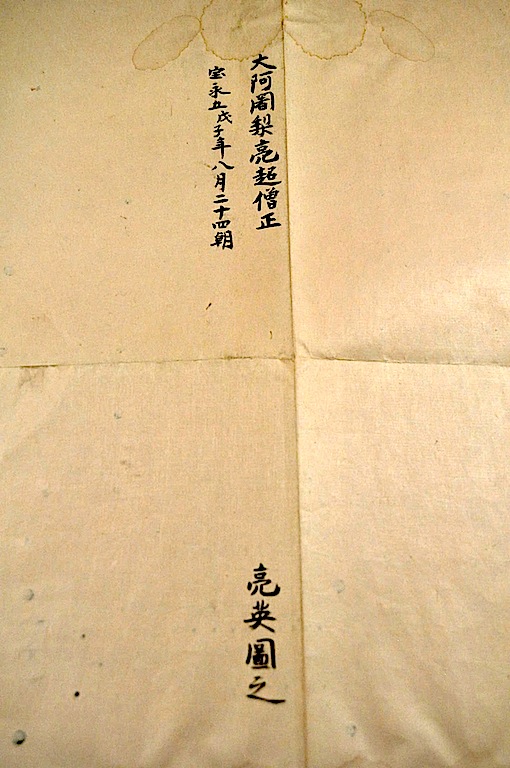 大阿闍梨亮超僧正
宝永五戊子年八月二十四朝
亮英圖之